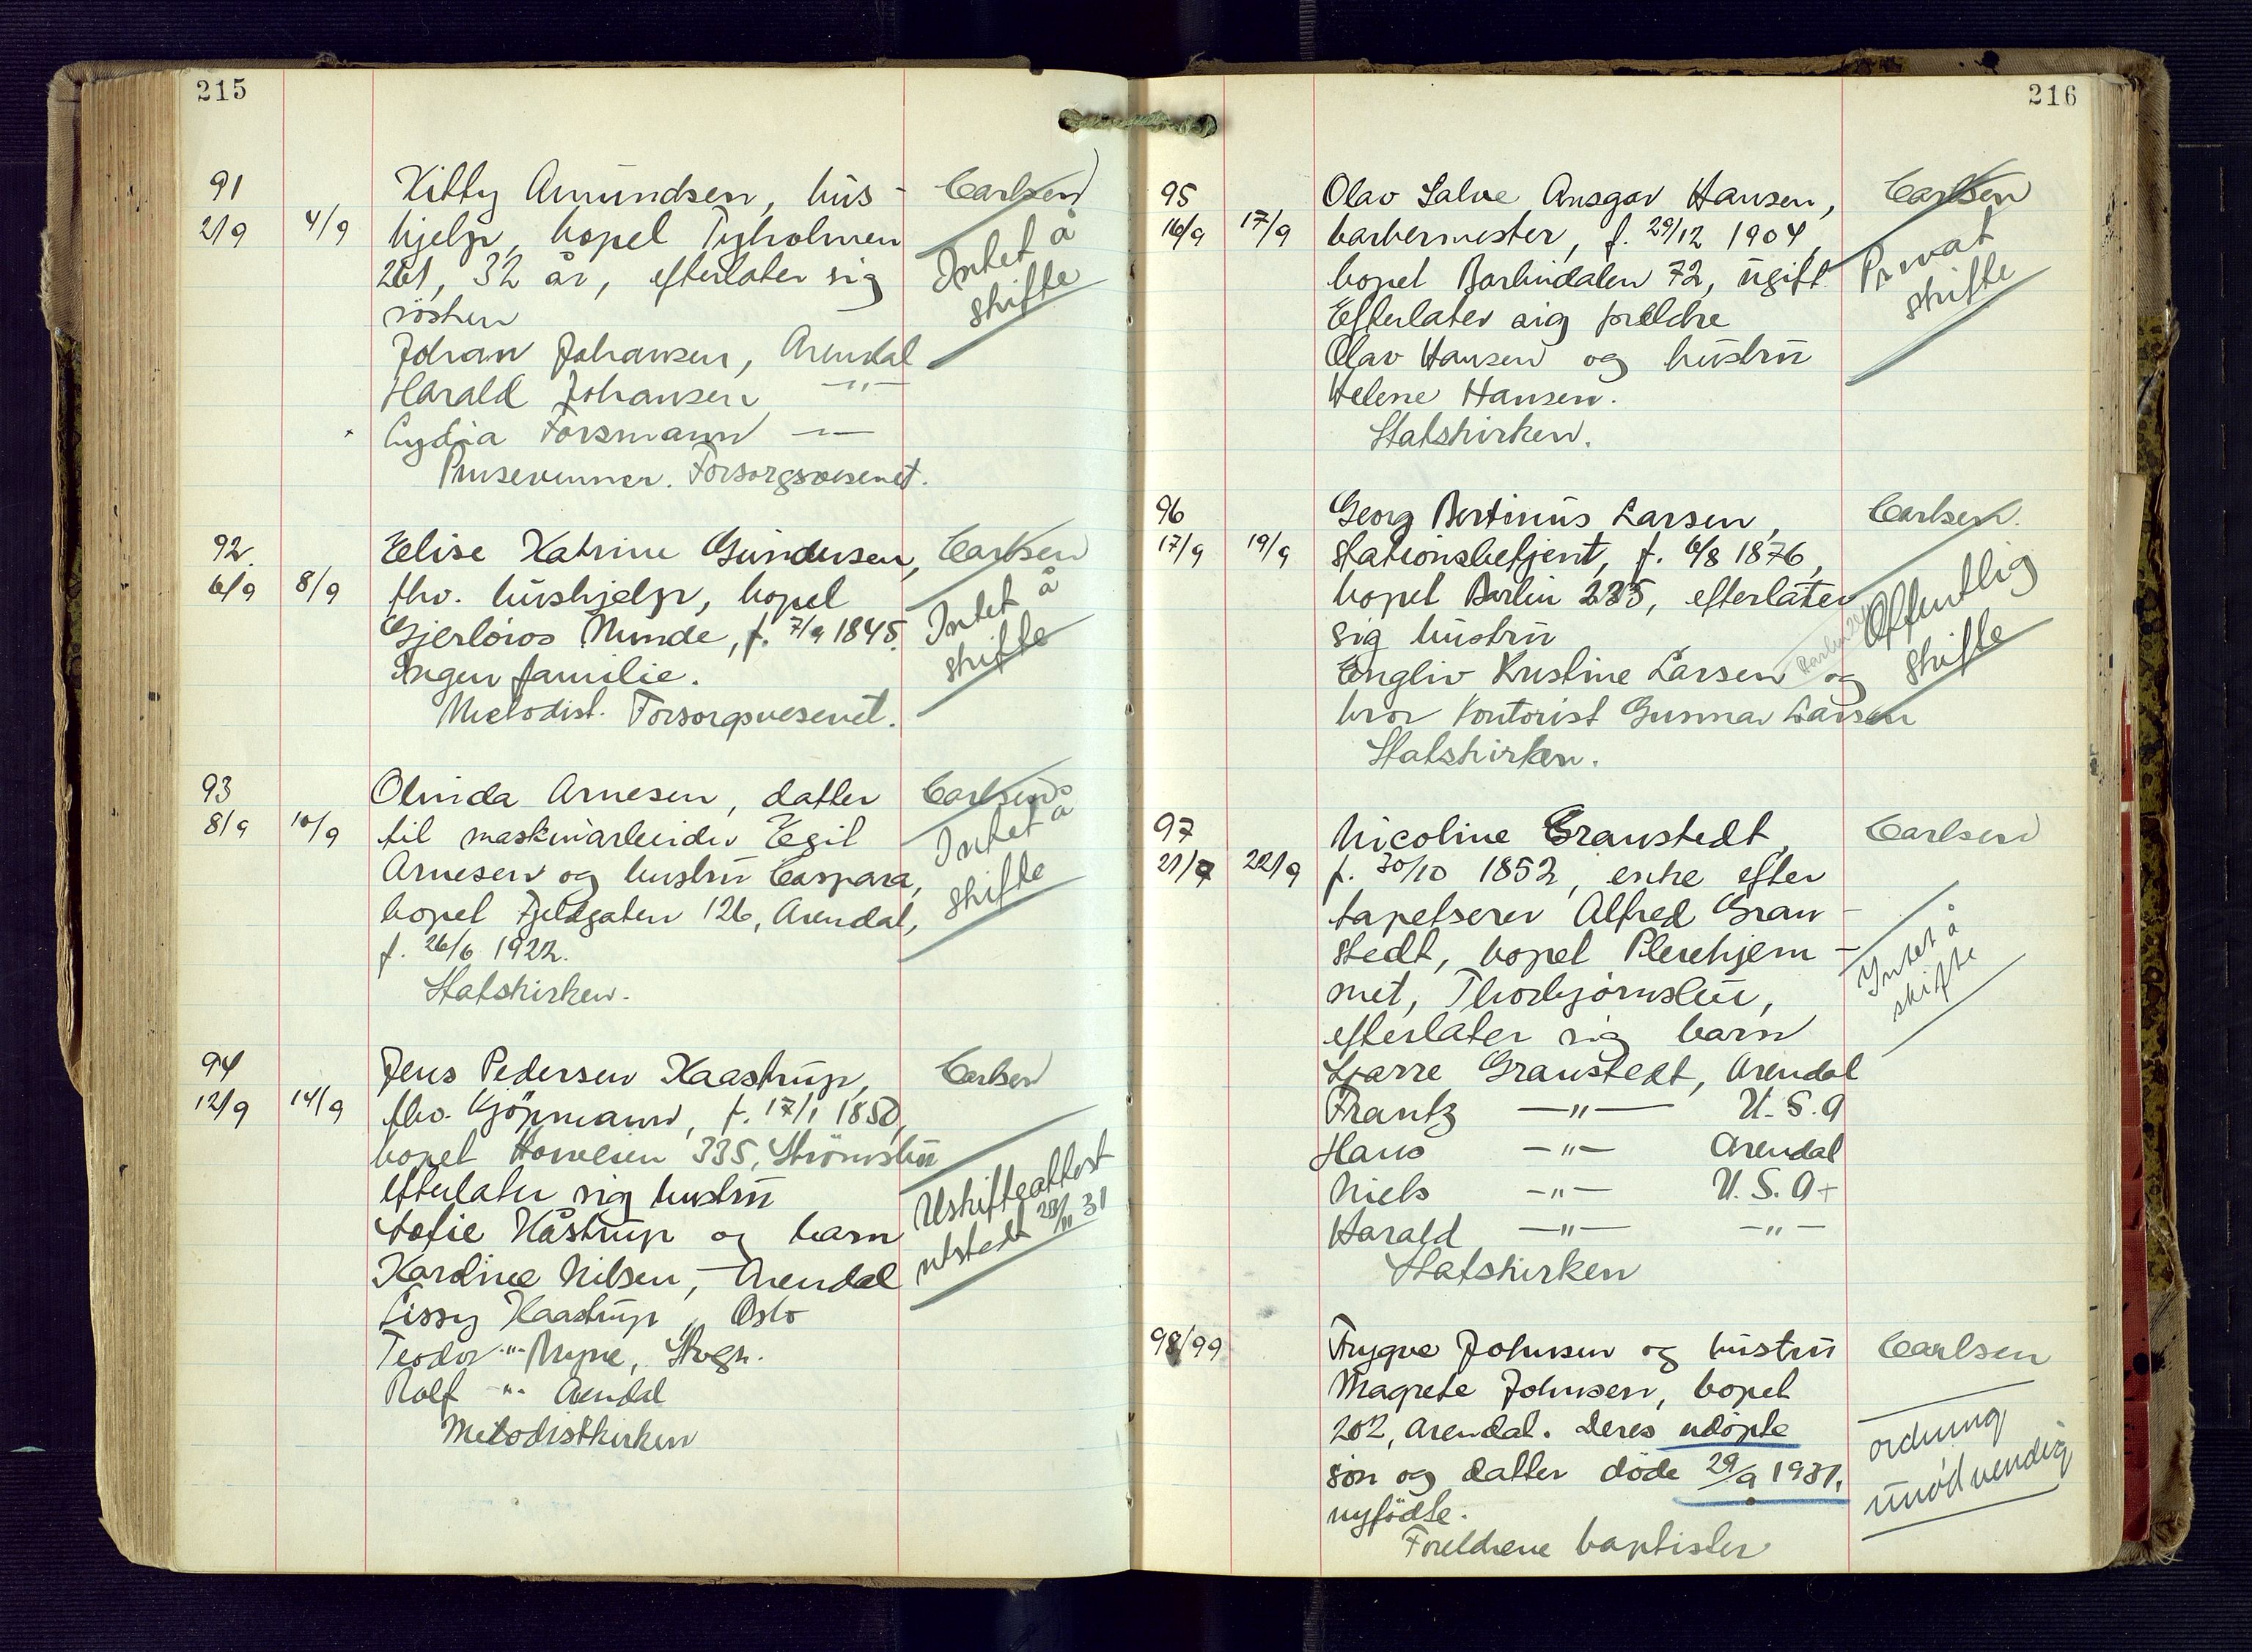 215
91
2/9 4/9
Kitty Amundsen, hus-
hjelp, bopel Tyholmen
261, 32 år, efterlater sig
Johan Johansen, Arendal
Harald Johansen —"—
Lydia Forsmann —"—
Pinsevenner. Forsorgsvesenet.
Carlsen
Intet å
skifte
92.
6/9 8/9
Elise Katrine Gundersen,
fhv. hushjelp, bopel
Gjerløios Minde, f. 7/9 1845.
Ingen familie.
Metodist. Forsorgsvesenet.
Carlsen
Intet å
skifte
93
8/9 10/9
Olinda Arnesen, datter
til maskinarbeider Egil
Arnesen og hustru Caspara,
bopel Fjeldgaten 126, Arendal,
f. 26/6 1922.
Statskirken.
Carlsen
Intet å
skifte
94
12/9 14/9
Jens Pedersen Kaastrup,
fhv. kjöpmann, f. 17/1 1850,
bopel 335, Strömsbu
efterlater sig hustru
Sofie Kåstrup og barn
Karoline Nilsen, Arendal
Lissy Kaastrup, Oslo
Teodor -"-
Rolf -"- Arendal
Metodistkirken
Carlsen
Uskifteattest
utstedt 28/11 31
216
95
16/9 17/9
Olav Salve Ansgar Hansen,
barbermester, f. 29/12 1904,
bopel Barbudalen 72, ugift.
Efterlater sig foreldre
Olav Hansen og hustru
Helene Hansen.
Statskirken.
Carlsen
Privat
skifte
96
17/9 19/9
Georg Bertinius Larsen,
stationsbetjent, f. 6/8 1876,
bopel Barbu 235, efterlater
sig hustru
Engliv Kristine Larsen og
bror kontorist Gunnar Larsen
Statskirken.
Carlsen.
Offentlig
skifte
97
21/9 22/9
Nicoline Granstedt,
f. 30/10 1852, enke efter
tapetserer Alfred Gran-
stedt, bopel Pleiehjem-
met, Thorbjørnsbu,
efterlater sig barn
Sjarre Granstedt, Arendal
Frantz —"— U.S.A
Hans —"— Arendal
Niels —"— U.S.A +
Harald —"— —"—
Statskirken
Carlsen
Intet å
skifte
98/99
Trygve Johnsen og hustru
Magrete Johnsen, bopel
202, Arendal. Deres udöpte
sön og datter döde 29/9 1931,
nyfödte.
Foreldrene baptister
Carlsen
ordning
unödvendig